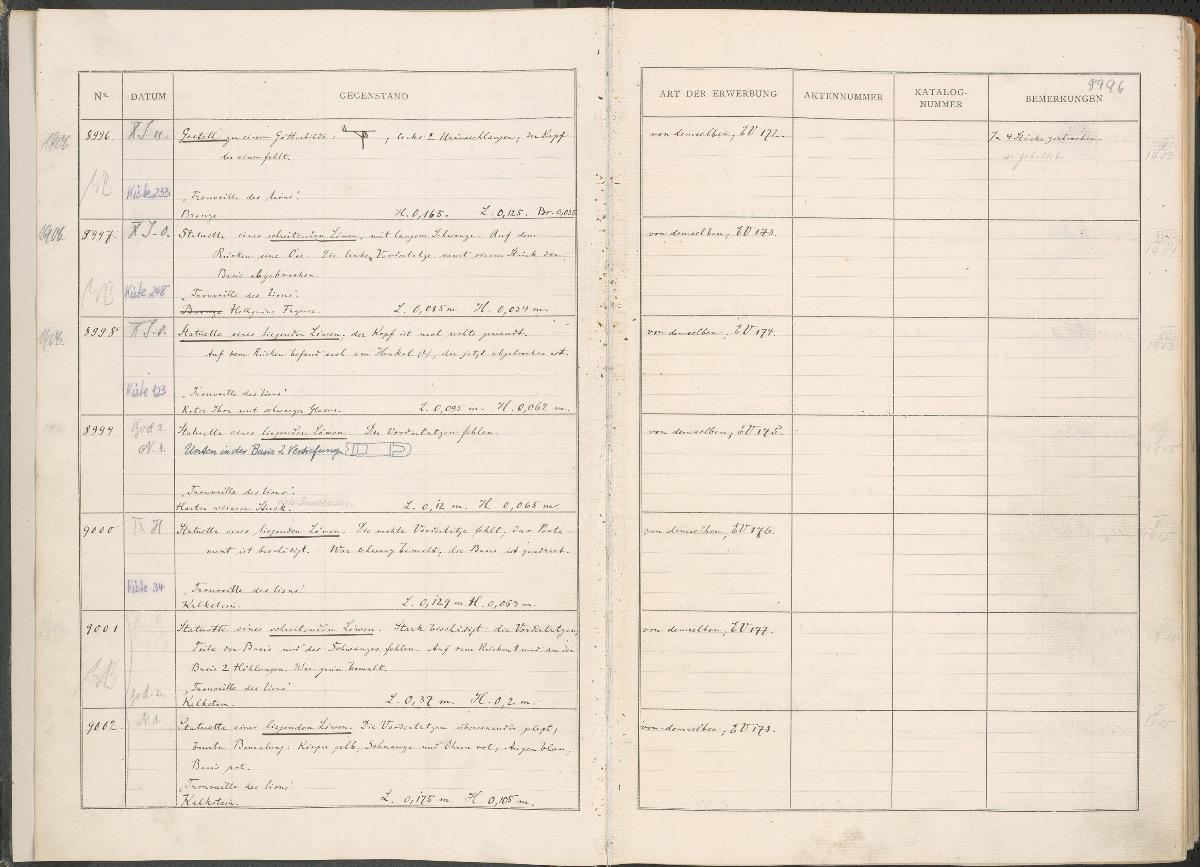 Nr. DATUM GEGENSTAND
8996. Gestell zu einem Götterbilde: , links 2 Uräusschlangen, der Kopf
der einen fehlt.
Kiste 233
„Trouvaille des lions“.
Bronze H. 0,165. L. 0,125. Br. 0,035
8997. Statuette eines schreitenden Löwen, mit langem Schwanze. Auf dem
Rücken eine Öse. Die linke Vordertatze samt einem Stück der
Basis abgebrochen.
Kiste 248
„Trouvaille des lions“.
Bronze Hellgrüne Fayence. L. 0,085 m. H. 0,054 m.
8998 Statuette eines liegenden Löwen; der Kopf ist nach rechts gewandt.
Auf dem Rücken befand sich ein Henkel (?), der jetzt abgebrochen ist.
Kiste 123
„Trouvaille des lions“
Roter Thon mit schwarzer Glasur. L. 0,095 m. H. 0,062 m.
8999 Statuette eines liegenden Löwen. Die Vordertatzen fehlen.
N. 1. Unten in der Basis 2 Vertiefung
„Trouvaille des lions“.
Harter weisser Stuck. L. 0,12 m. H. 0,065 m.
9000 IX H Statuette eines liegenden Löwen. Die rechte Vordertatze fehlt, das Posta-
ment ist beschädigt. War schwarz bemalt, die Basis ist quadriert.
Kiste 34
„Trouvaille des lions“
Kalkstein. L. 0,129 m. H. 0,063 m.
9001 Statuette eines schreitenden Löwen. Stark beschädigt: die Vordertatzen,
Teile der Basis und des Schwanzes fehlen. Auf dem Rücken 1 und an der
Basis 2 Höhlungen. War grün bemalt.
„Trouvaille des lions“
Kalkstein. L. 0,37 m. H. 0,2 m.
9002. Statuette eines liegenden Löwen. Die Vordertatzen übereinander gelegt,
bunte Bemalung: Körper gelb, Schnauze und Ohren rot, Augen blau,
Basis rot.
„Trouvaille des lions“
Kalkstein. L. 0,175 m. H. 0,105 m.
8996
ART DER ERWERBUNG AKTENNUMMER KATALOG-
NUMMER BEMERKUNGEN
von demselben, EV 172. In 4 Stücke zerbrochen
von demselben, EV 173.
von demselben, EV 174.
von demselben, EV 175.
von demselben, EV 176.
von demselben, EV 177.
von demselben, EV 173.